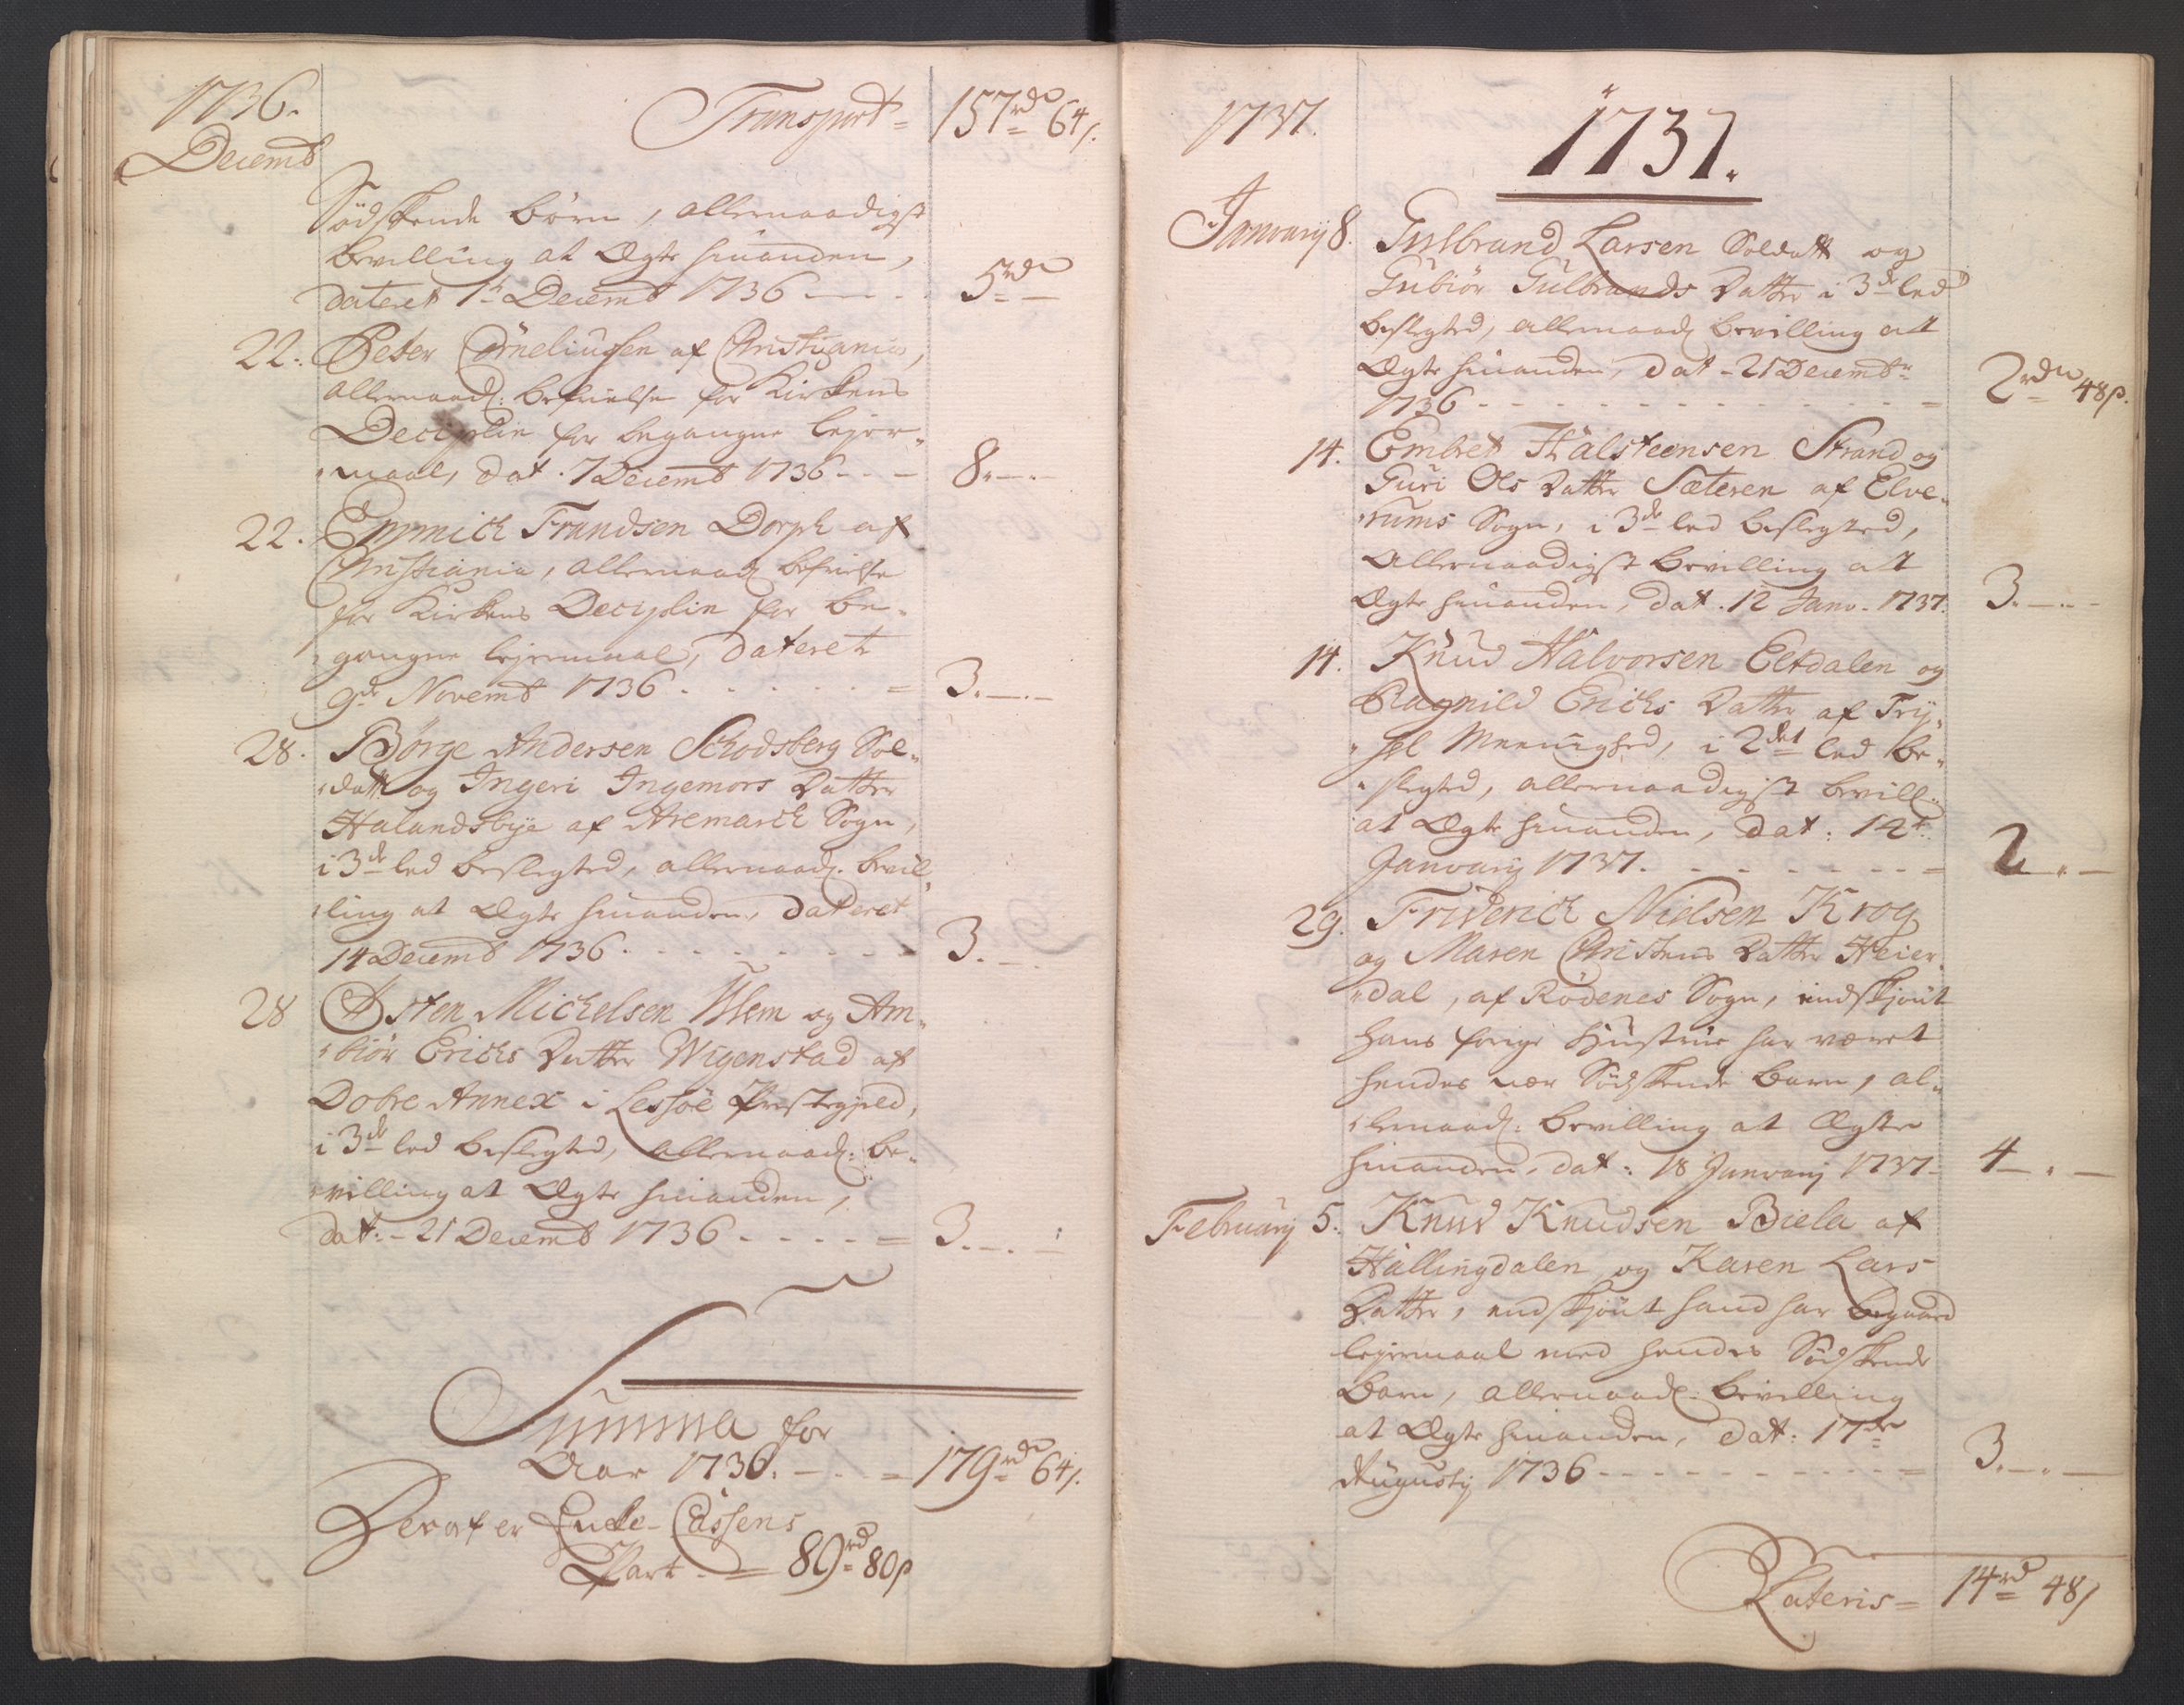 1736.
Decemb
Transport = 157 rd 64 s.
Södskende börn, allernaadigst
bevilling at Ægte hinanden,
dateret 1te Decemb 1736 — 5 rd —
22. Peter Corneliussen af Christiania,
allernaad: befrielse for Kirkens
Deciplin for begangne lejer-
maal, dat. 7 Decemb 1736 - - - 8. — . —
22. Emmich Frandsen Dorph af
Christiania, allernaad: befrielse
for Kirkens Deciplin for be-
gangne lejermaal, dateret
9de Novemb 1736 . . . . . = 3. — . —
28. Börge Andersen Schodsberg Sol-
datt og Ingeri Ingemors Datter
Halandsbye af Aremarck Sogn,
i 3de led beslegted, allernaad: bevil-
ling at Ægte hinanden, dateret
14 Decemb 1736 . - - - - - - 3. — .
28 Østen Michelsen Ulem og Am-
biör Erichs Datter Wigenstad af
Dobre Annex i Lessöe Prestegield,
i 3de led beslegted, allernaad: be-
villing at Ægte hinanden,
dat: - 21 Decemb 1736 - - - - = 3. — . —
Summa for
Aar 1736. - - - = 179 rd 64 s.
Deraf er Qvæst-Cassens
Part - = 89 rd 80 s
1737.
1737.
January 8. Gulbrand Larsen Soldatt og
Gubiör Gulbrands Datter i 3de led
beslegted, allernaad: bevilling at
Ægte hinanden, dat - 21 Decembr
1736 - - - - - - - - - = 2 rd 48 s.
14. Embret Halsteensen Strand og
Guri Ols Datter Sæteren af Elve-
rums Sogn, i 3de led beslegted,
Allernaadigst bevilling at
Ægte hinanden, dat. 12 Janv. 1737. 3. — . —
14. Knud Halvorsen Eltdalen og
Ragnild Erichs Datter af Try-
sel Meenighed, i 2det led be-
slegted, allernaadigst bevill:
at Ægte hinanden, dat: 12te
January 1737. - - - - - - = 2 . —
29. Friderich Nielsen Krog
og Maren Christens Datter Heier-
dal, af Rödenes Sogn, endskjönt
hans forige Hustrue har været
hendes nær Södskende barn, al-
lernaad: bevilling at Ægte
hinanden, dat: 18 January 1737 - 4 — . —
February 5. Knud Knudsen Biela af
Hallingdalen og Karen Lars
Datter, endskjönt hand har begaaed
lejermaal med hendes Södskende
barn, allernaad: bevilling
at Ægte hinanden, dat: 17de
Augusty 1736 - - - - - - - - = 3. — . —
Lateris = 14 rd 48 s